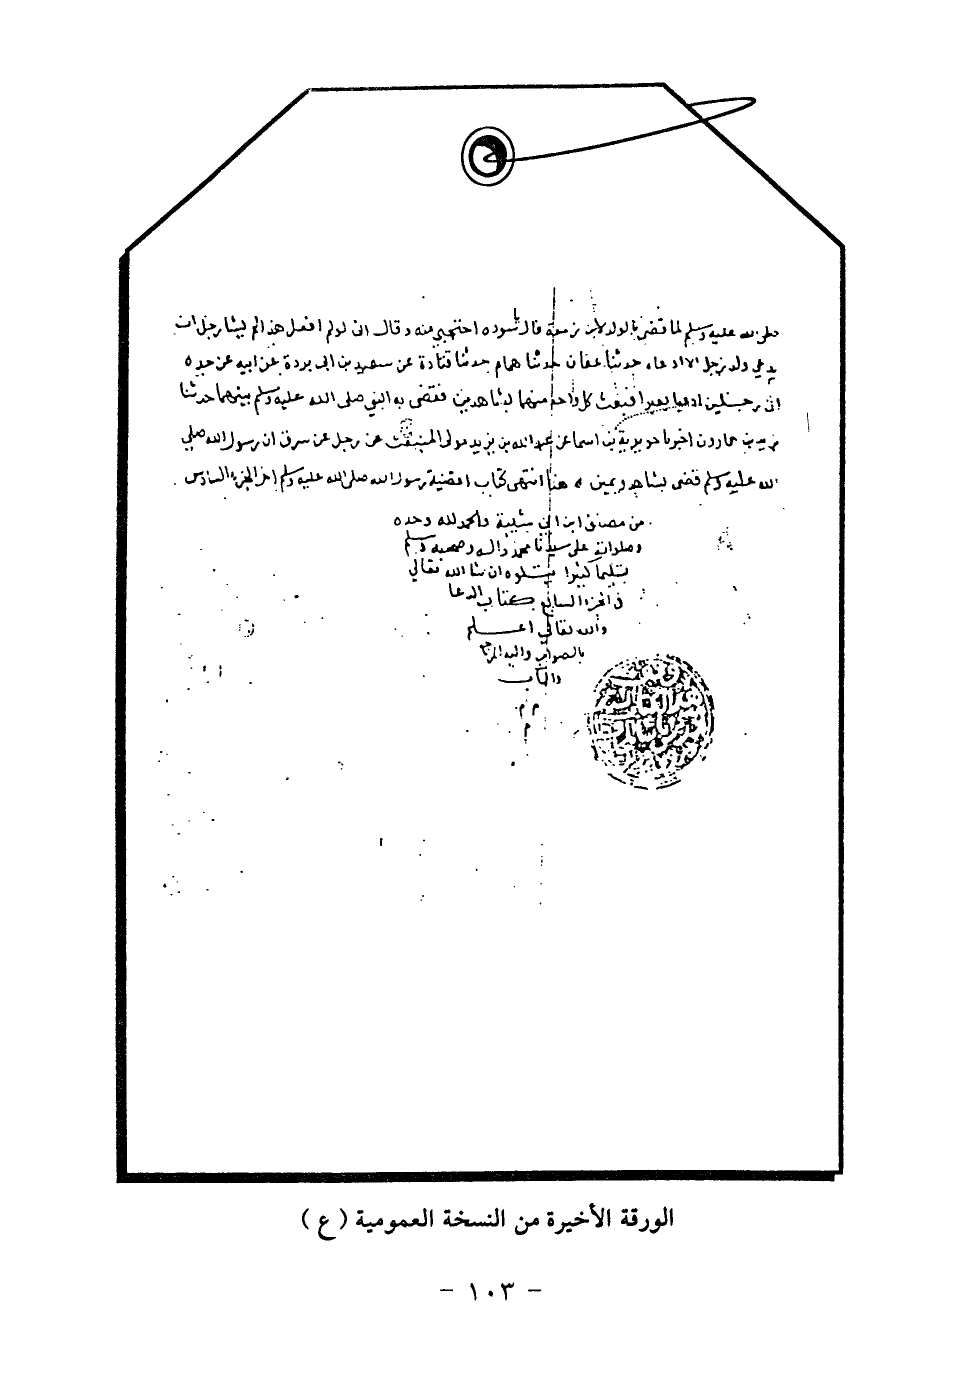 صلى الله عليه وسلم لما قضى بالولد لابن زمعة قال لسوده احتجبي منه وقال انى لولم افعل هذا لم يشا رجل ان
يدعي ولد رجل الا ادعاه حدثنا عفان حدثنا همام حدثنا قتادة عن سعيد بن ابى بردة عن ابيه عن جده
ان رجلين ادعيا بعيرا فبعث كل واحد منهما بشاهدين فقضى به النبي صلى الله عليه وسلم بينهما حدثنا
يزيد بن هارون اخبرنا جويرية بن اسما عن عبدالله بن يزيد مولى المنبعث عن رجل عن سرق ان رسول الله صلي
الله عليه وسلم قضى بشاهد ويمين ه هنا انتهى كتاب اقضية رسول الله صلى الله عليه وسلم اخر الجزء السادس
من مصنف ابن ابى شيبة والحمد لله وحده
وصلواته على سيدنا محمد واله وصحبه وسلم
تسليما كثيرا يتلوه ان شا الله تعالي
في الجزء السابع كتاب الدعا
والله تعالى اعلم
بالصواب واليه المرجع
والماب
م م
م
الورقة الأخيرة من النسخة العمومية ( ع )
- ١٠٣ -